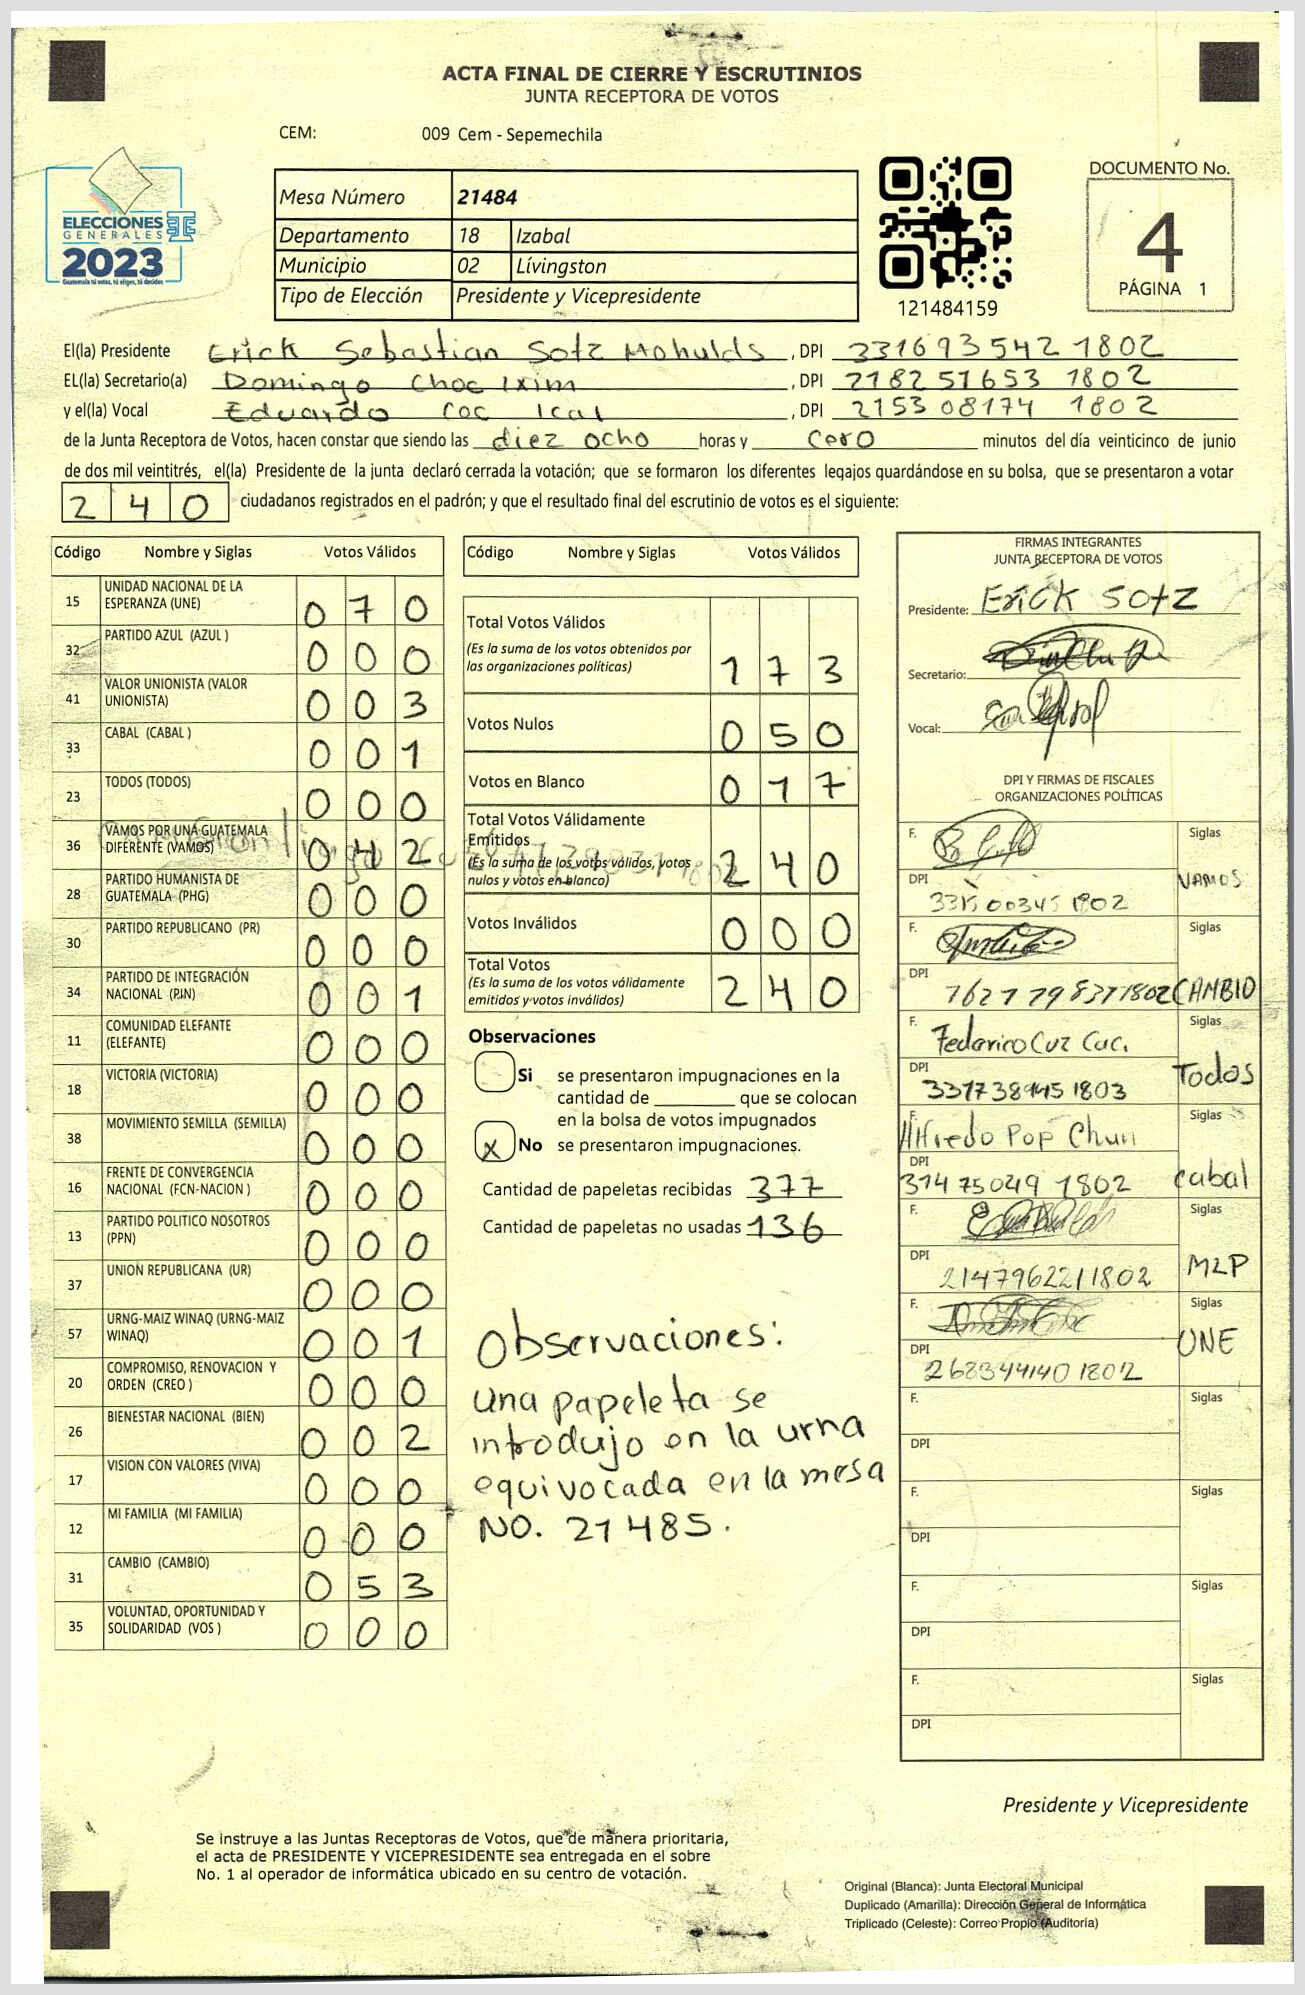 ACTA FINAL DE CIERRE Y ESCRUTINIOS
JUNTA RECEPTORA DE VOTOS
CEM: 009 Cem - Sepemechila
ELECCIONES
GENERALES
2023
Guatemala tú votas, tú eliges, tú decides
Mesa Número 21484
Departamento 18 Izabal
Municipio 02 Lívingston
Tipo de Elección Presidente y Vicepresidente
121484159
DOCUMENTO No.
4
PÁGINA 1
El(la) Presidente Erick Sebastian Sotz , DPI 331693542 1802
EL(la) Secretario(a) Domingo Choc Ixim , DPI 218251653 1802
y el(la) Vocal Eduardo Coc Ical , DPI 215308174 1802
de la Junta Receptora de Votos, hacen constar que siendo las diez ocho horas y cero minutos del día veinticinco de junio
de dos mil veintitrés, el(la) Presidente de la junta declaró cerrada la votación; que se formaron los diferentes legajos quardándose en su bolsa, que se presentaron a votar
240 ciudadanos registrados en el padrón; y que el resultado final del escrutinio de votos es el siguiente:
Código Nombre y Siglas Votos Válidos
15 UNIDAD NACIONAL DE LA ESPERANZA (UNE) 070
32 PARTIDO AZUL (AZUL ) 000
41 VALOR UNIONISTA (VALOR UNIONISTA) 003
33 CABAL (CABAL ) 001
23 TODOS (TODOS) 000
36 VAMOS POR UNA GUATEMALA DIFERENTE (VAMOS) 042
28 PARTIDO HUMANISTA DE GUATEMALA (PHG) 000
30 PARTIDO REPUBLICANO (PR) 000
34 PARTIDO DE INTEGRACIÓN NACIONAL (PIN) 001
11 COMUNIDAD ELEFANTE (ELEFANTE) 000
18 VICTORIA (VICTORIA) 000
38 MOVIMIENTO SEMILLA (SEMILLA) 000
16 FRENTE DE CONVERGENCIA NACIONAL (FCN-NACION ) 000
13 PARTIDO POLITICO NOSOTROS (PPN) 000
37 UNION REPUBLICANA (UR) 000
57 URNG-MAIZ WINAQ (URNG-MAIZ WINAQ) 001
20 COMPROMISO, RENOVACION Y ORDEN (CREO ) 000
26 BIENESTAR NACIONAL (BIEN) 002
17 VISION CON VALORES (VIVA) 000
12 MI FAMILIA (MI FAMILIA) 000
31 CAMBIO (CAMBIO) 053
35 VOLUNTAD, OPORTUNIDAD Y SOLIDARIDAD (VOS ) 000
Código Nombre y Siglas Votos Válidos
Total Votos Válidos
(Es la suma de los votos obtenidos por
las organizaciones políticas) 173
Votos Nulos 050
Votos en Blanco 017
Total Votos Válidamente
Emitidos
(Es la suma de los votos válidos, votos
nulos y votos en blanco) 240
Votos Inválidos 000
Total Votos
(Es la suma de los votos válidamente
emitidos y votos inválidos) 240
Observaciones
Si se presentaron impugnaciones en la
cantidad de ________ que se colocan
en la bolsa de votos impugnados
X No se presentaron impugnaciones.
Cantidad de papeletas recibidas 377
Cantidad de papeletas no usadas 136
Observaciones:
una papeleta se
introdujo en la urna
equivocada en la mesa
NO. 21485.
FIRMAS INTEGRANTES
JUNTA RECEPTORA DE VOTOS
Presidente: Erick Sotz
Secretario:
Vocal:
DPI Y FIRMAS DE FISCALES
ORGANIZACIONES POLÍTICAS
F. Siglas
DPI 331500345 1802 VAMOS
F. Siglas
DPI 1802 CAMBIO
F. Federico Cuz Cuc. Siglas
DPI 1803 Todos
F. Alfredo Pop Chun Siglas
DPI 314 75049 1802 cabal
F. Siglas
DPI 2147962211802 MLP
F. Siglas
DPI 268344140 1802 UNE
F. Siglas
DPI
F. Siglas
DPI
F. Siglas
DPI
F. Siglas
DPI
Presidente y Vicepresidente
Se instruye a las Juntas Receptoras de Votos, que de manera prioritaria,
el acta de PRESIDENTE Y VICEPRESIDENTE sea entregada en el sobre
No. 1 al operador de informática ubicado en su centro de votación.
Original (Blanca): Junta Electoral Municipal
Duplicado (Amarilla): Dirección General de Informática
Triplicado (Celeste): Correo Propio (Auditoría)